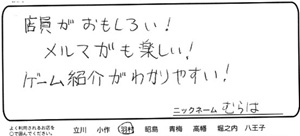 店員がおもしろい!
メルマガも楽しい!
ゲーム紹介がわかりやすい!
ニックネーム むらは
よく利用されるお店を
○で囲んでください。 立川 小作 羽村 昭島 青梅 高幡 堀之内 八王子